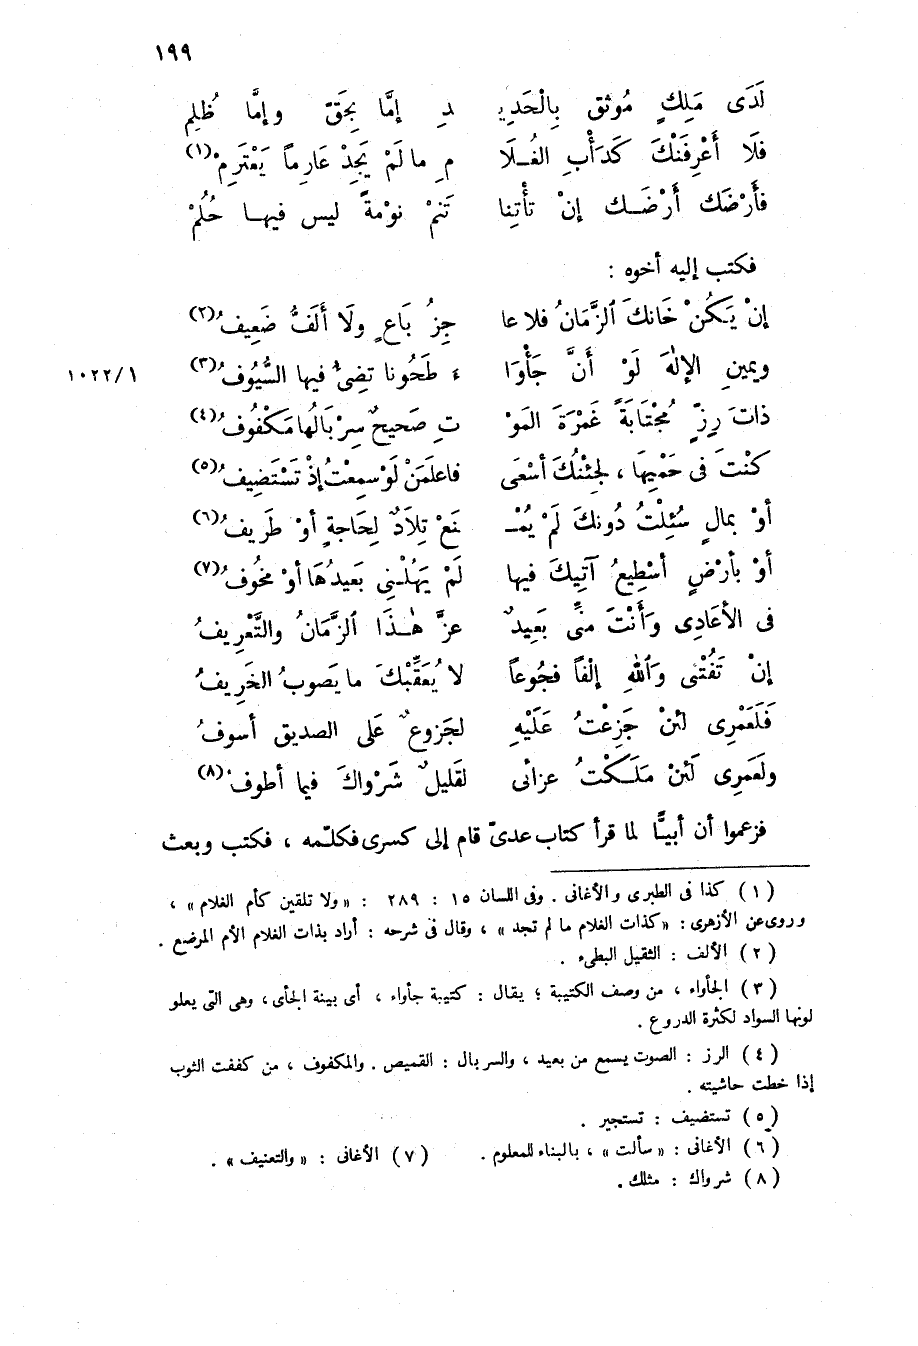 ١٩٩
لَدَى مَلِكٍ مُوثَقٍ بِالْحَدِيـ دِ إِمَّا بِحَقّ وإِمَّا ظُلِم
فَلَا أَعْرِفَنْكَ كَدَأْبِ الغُـلَا مِ ما لَمْ يَجِدْ عَارِماً يَعْتَرِمْ(١)
فأَرْضَك أَرْضَـك إِنْ تأْتِنا تَنَمْ نوْمةً ليس فيهـا حُلُمْ
فكتب إليه أخوه :
إِنْ يَكُنْ خَانكَ ٱلزَّمَانُ فلا عا جِزُ بَاعٍ ولَا أَلَفُّ ضَعِيفُ(٢)
ويمينِ الإِلٰهِ لَوْ أَنَّ جَأْوَا ءَ طَحُونا تضِىءُ فيها السُّيُوفُ(٣)
١/١٠٢٢
ذاتَ رِزٍّ مُجْتَابَةً غَمْرَةَ المَوْ تِ صَحِيحٌ سِرْبَالُها مَكْفُوفُ(٤)
كنْتَ فى حَمْيِهَا ، لَجِئْتُكَ أَسْعَى فاعلَمَنْ لَوْ سمِعْتُ إِذْ تَسْتَضِيفُ(٥)
أوْ بمالٍ سُئِلْتُ دُونكَ لَمْ يُمْـ ـنَعْ تِلَادٌ لِحَاجةٍ أوْ طَرِيفُ(٦)
أوْ بأَرْضٍ أسْطِيعُ آتِيكَ فيها لَمْ يَهُلْـنِى بَعِيدُهَا أوْ مَخُوفُ(٧)
فى الأَعَادِى وَأَنْتَ مِنِّى بَعِيدٌ عزَّ هٰـذَا ٱلزَّمَانُ والتَّعْرِيفُ
إِنْ تَفُتْنى وَٱللهِ إِلْفاً فجُوعاً لا يُعَقِّبْكَ ما يَصوبُ الخَرِيفُ
فَلَعَمْرِى لئنْ جَزِعْتُ عَلَيْهِ لجَزوعٌ عَلَى الصديق أسوفُ
ولَعَمرِى لَئِنْ مَلَـكْتُ عزائى لقَليلٌ شَرْواكَ فيما أطوفُ(٨)
فزعموا أن أبيًّا لما قرأ كتاب عدىّ قام إلى كسرى فكلّمه ، فكتب وبعث
(١) كذا فى الطبرى والأغانى . وفى اللسان ١٥ : ٢٨٩ : « ولا تلقين كأم الغلام » ،
وروى عن الأزهرى : « كذات الغلام ما لم تجد » ، وقال فى شرحه : أراد بذات الغلام الأم المرضع .
(٢) الألف : الثقيل البطىء .
(٣) الجأواء ، من وصف الكتيبة ؛ يقال : كتيبة جأواء ، أى بينة الجأى ، وهى التى يعلو
لونها السواد لكثرة الدروع .
(٤) الرز : الصوت يسمع من بعيد ، والسربال : القميص . والمكفوف ، من كففت الثوب
إذا خطت حاشيته .
(٥) تستضيف : تستجير .
(٦) الأغانى : « سألت » ، بالبناء للمعلوم . (٧) الأغانى : « والتعنيف » .
(٨) شرواك : مثلك .